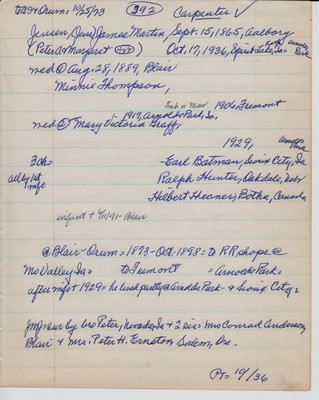 to A + Orum = 10/25/73 (392) Carpenter ✓
Jensen, (Jens) James Martin, Sept. 15, 1865, Aalborg
(Peter & Margaret) Oct. 17, 1936, Spirit Lake, Ia = Arnolds Park
med @ Aug. 28, 1889, Blair
Minnie Thompson,
1906 Fremont
1917, Arnolds Park, Ia.
med @ Mary Victoria Graff,
1929, Arnolds Park
3 ch = Earl Batman, Sioux City, Ia
all by 1st mge Ralph Hunter, Oakdale, Nebr
Hilbert Heaner, Botha, Canada
infant + 4/11/91 - Blair
@ Blair - Orum = 1873 - Oct. 1898 = to R.R. shops @
Mo Valley, Ia = to Fremont = Arnolds Park =
after mfst 1929 = he lived partly @ Arnolds Park - & Sioux City =
sur by bro Peter, Nevada, Ia & 2 sis = Mrs Conrad Anderson,
Blair & Mrs. Peter H. Ernsten, Salem, Ore.
Pt = 10/36